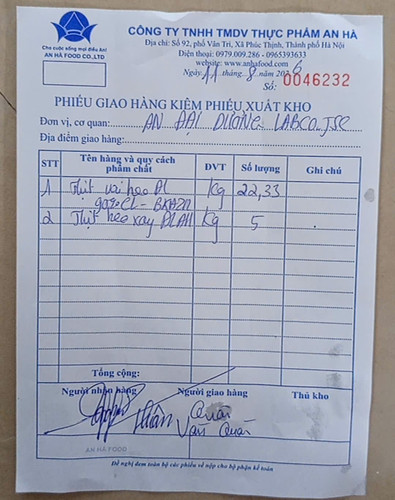 AN HÀ
Cho cuộc sống mọi điều An!
AN HA FOOD CO.,LTD
CÔNG TY TNHH TMDV THỰC PHẨM AN HÀ
Địa chỉ: Số 92, phố Văn Trì, Xã Phúc Thịnh, Thành phố Hà Nội
Điện thoại: 0979.009.286 - 0965393633
website: www.anhafood.com
Ngày 11 tháng 8 năm 2026
Số: 0046232
PHIẾU GIAO HÀNG KIÊM PHIẾU XUẤT KHO
Đơn vị, cơ quan: AN ĐẠI DƯƠNG LABCO.JSC
Địa điểm giao hàng:
STT Tên hàng và quy cách phẩm chất ĐVT Số lượng Ghi chú
1 Thịt vai heo ĐL kg 22,33
2 Thịt heo xay ĐLAH Kg 5
Tổng cộng:
Người nhận hàng Người giao hàng Thủ kho
Quân
Văn Quân
AN HA FOOD
Đề nghị đem toàn bộ các phiếu về nộp cho bộ phận kế toán